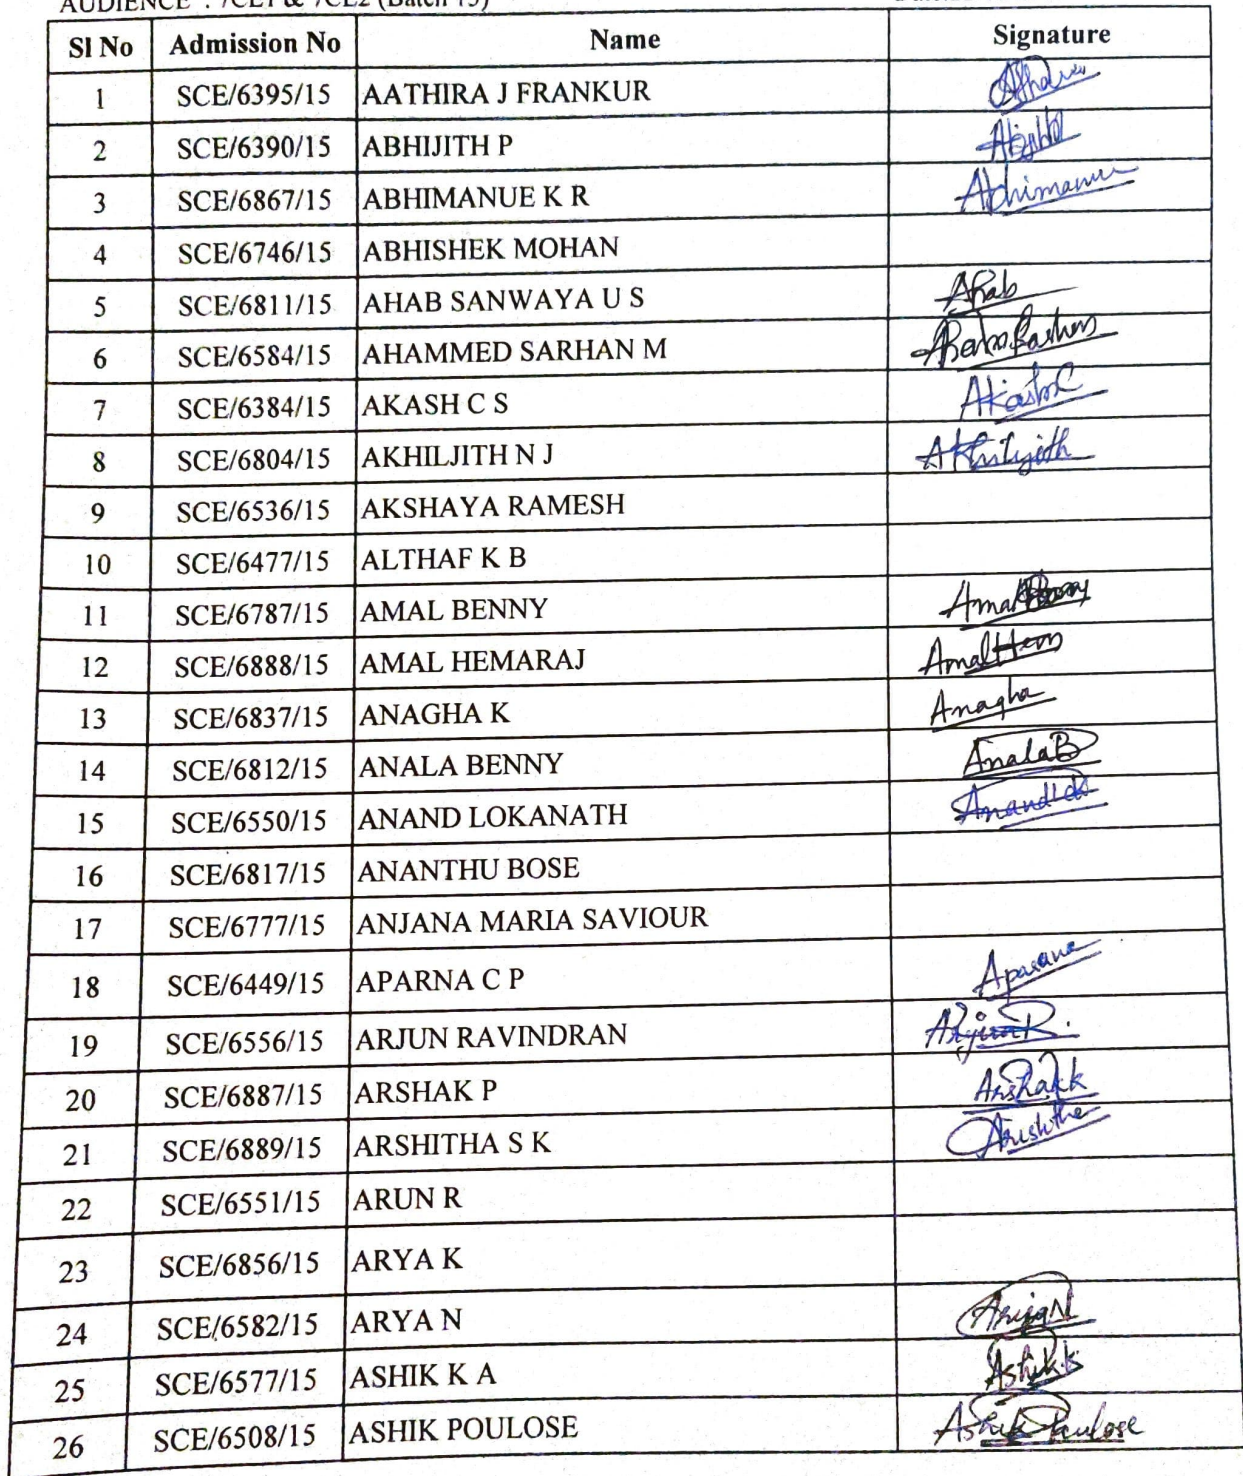 AUDIENCE : 7CE1 & 7CE2 (Batch 15)
Sl No Admission No Name Signature
1 SCE/6395/15 AATHIRA J FRANKUR
2 SCE/6390/15 ABHIJITH P
3 SCE/6867/15 ABHIMANUE K R Abhimanue
4 SCE/6746/15 ABHISHEK MOHAN
5 SCE/6811/15 AHAB SANWAYA U S Ahab
6 SCE/6584/15 AHAMMED SARHAN M
7 SCE/6384/15 AKASH C S Akash C
8 SCE/6804/15 AKHILJITH N J Akhiljith
9 SCE/6536/15 AKSHAYA RAMESH
10 SCE/6477/15 ALTHAF K B
11 SCE/6787/15 AMAL BENNY Amal Benny
12 SCE/6888/15 AMAL HEMARAJ Amal Hem
13 SCE/6837/15 ANAGHA K Anagha
14 SCE/6812/15 ANALA BENNY Anala B
15 SCE/6550/15 ANAND LOKANATH Anand Lok
16 SCE/6817/15 ANANTHU BOSE
17 SCE/6777/15 ANJANA MARIA SAVIOUR
18 SCE/6449/15 APARNA C P Aparana
19 SCE/6556/15 ARJUN RAVINDRAN Arjun R.
20 SCE/6887/15 ARSHAK P
21 SCE/6889/15 ARSHITHA S K
22 SCE/6551/15 ARUN R
23 SCE/6856/15 ARYA K
24 SCE/6582/15 ARYA N Arya N
25 SCE/6577/15 ASHIK K A
26 SCE/6508/15 ASHIK POULOSE Ashik Poulose